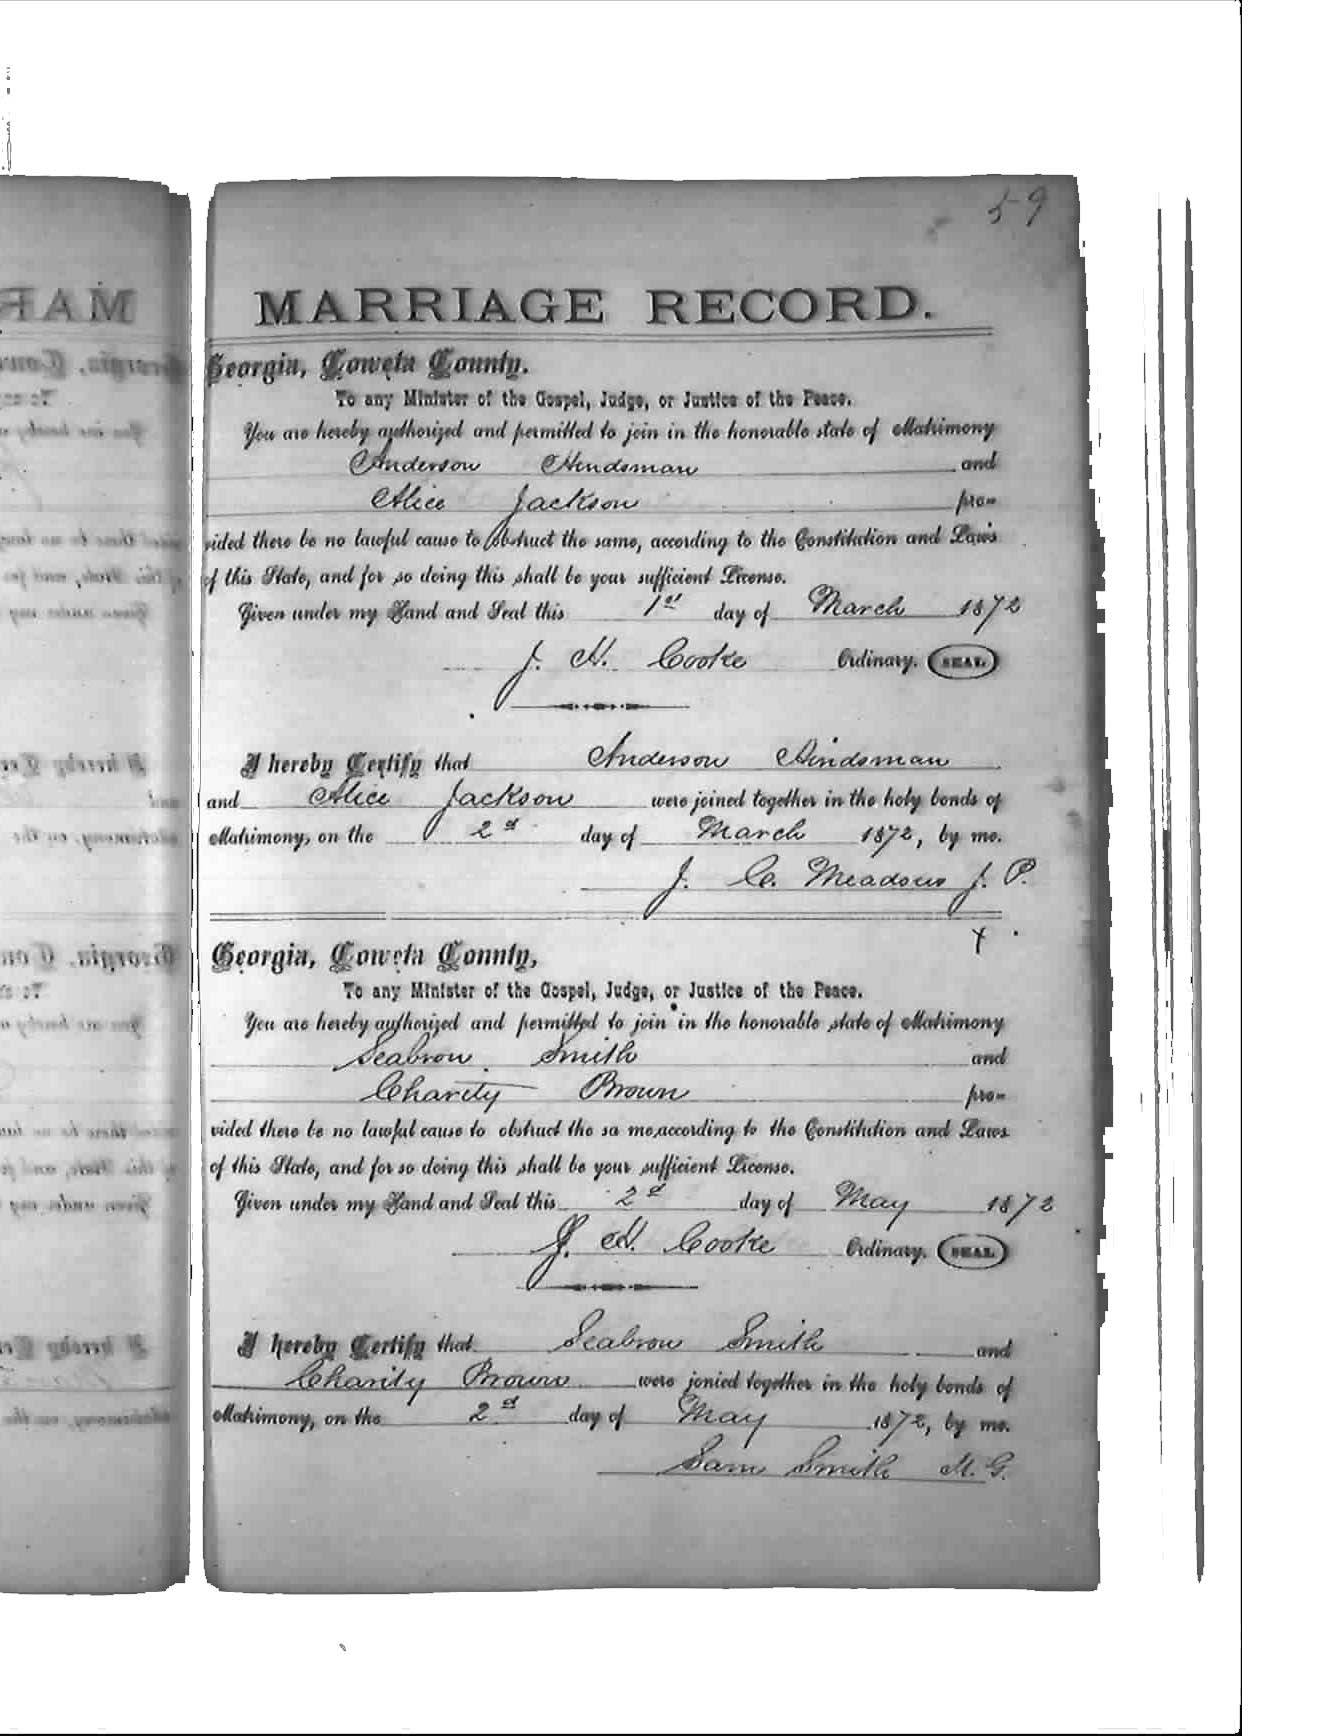 59
MARRIAGE RECORD.
Georgia, Coweta County.
To any Minister of the Gospel, Judge, or Justice of the Peace.
You are hereby authorized and permitted to join in the honorable state of Matrimony
Anderson Hindsman and
Alice Jackson pro-
vided there be no lawful cause to obstruct the same, according to the Constitution and Laws
of this State, and for so doing this shall be your sufficient License.
Given under my Hand and Seal this 1st day of March 1872
J. H. Cooke Ordinary. SEAL.
I hereby Certify that Anderson Hindsman
and Alice Jackson were joined together in the holy bonds of
Matrimony, on the 2d day of March 1872, by me.
J. C. Meadows J. P.
X
Georgia, Coweta County,
To any Minister of the Gospel, Judge, or Justice of the Peace.
You are hereby authorized and permitted to join in the honorable state of Matrimony
Seabron Smith and
Charity Brown pro-
vided there be no lawful cause to obstruct the sa me,according to the Constitution and Laws
of this State, and for so doing this shall be your sufficient License.
Given under my Hand and Seal this 2d day of May 1872
J. H. Cooke Ordinary. SEAL.
I hereby Certify that Seabron Smith and
Charity Brown were jonied together in the holy bonds of
Matrimony, on the 2d day of May 1872, by me.
Sam Smith M. G.